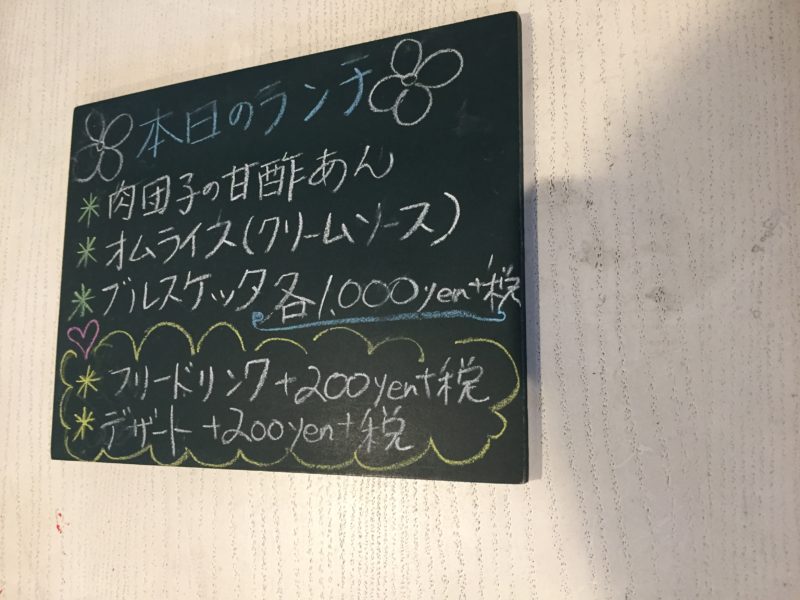 本日のランチ
* 肉団子の甘酢あん
* オムライス(クリームソース)
* ブルスケッタ 各1,000yen+税
* フリードリンク +200yen+税
* デザート +200yen+税